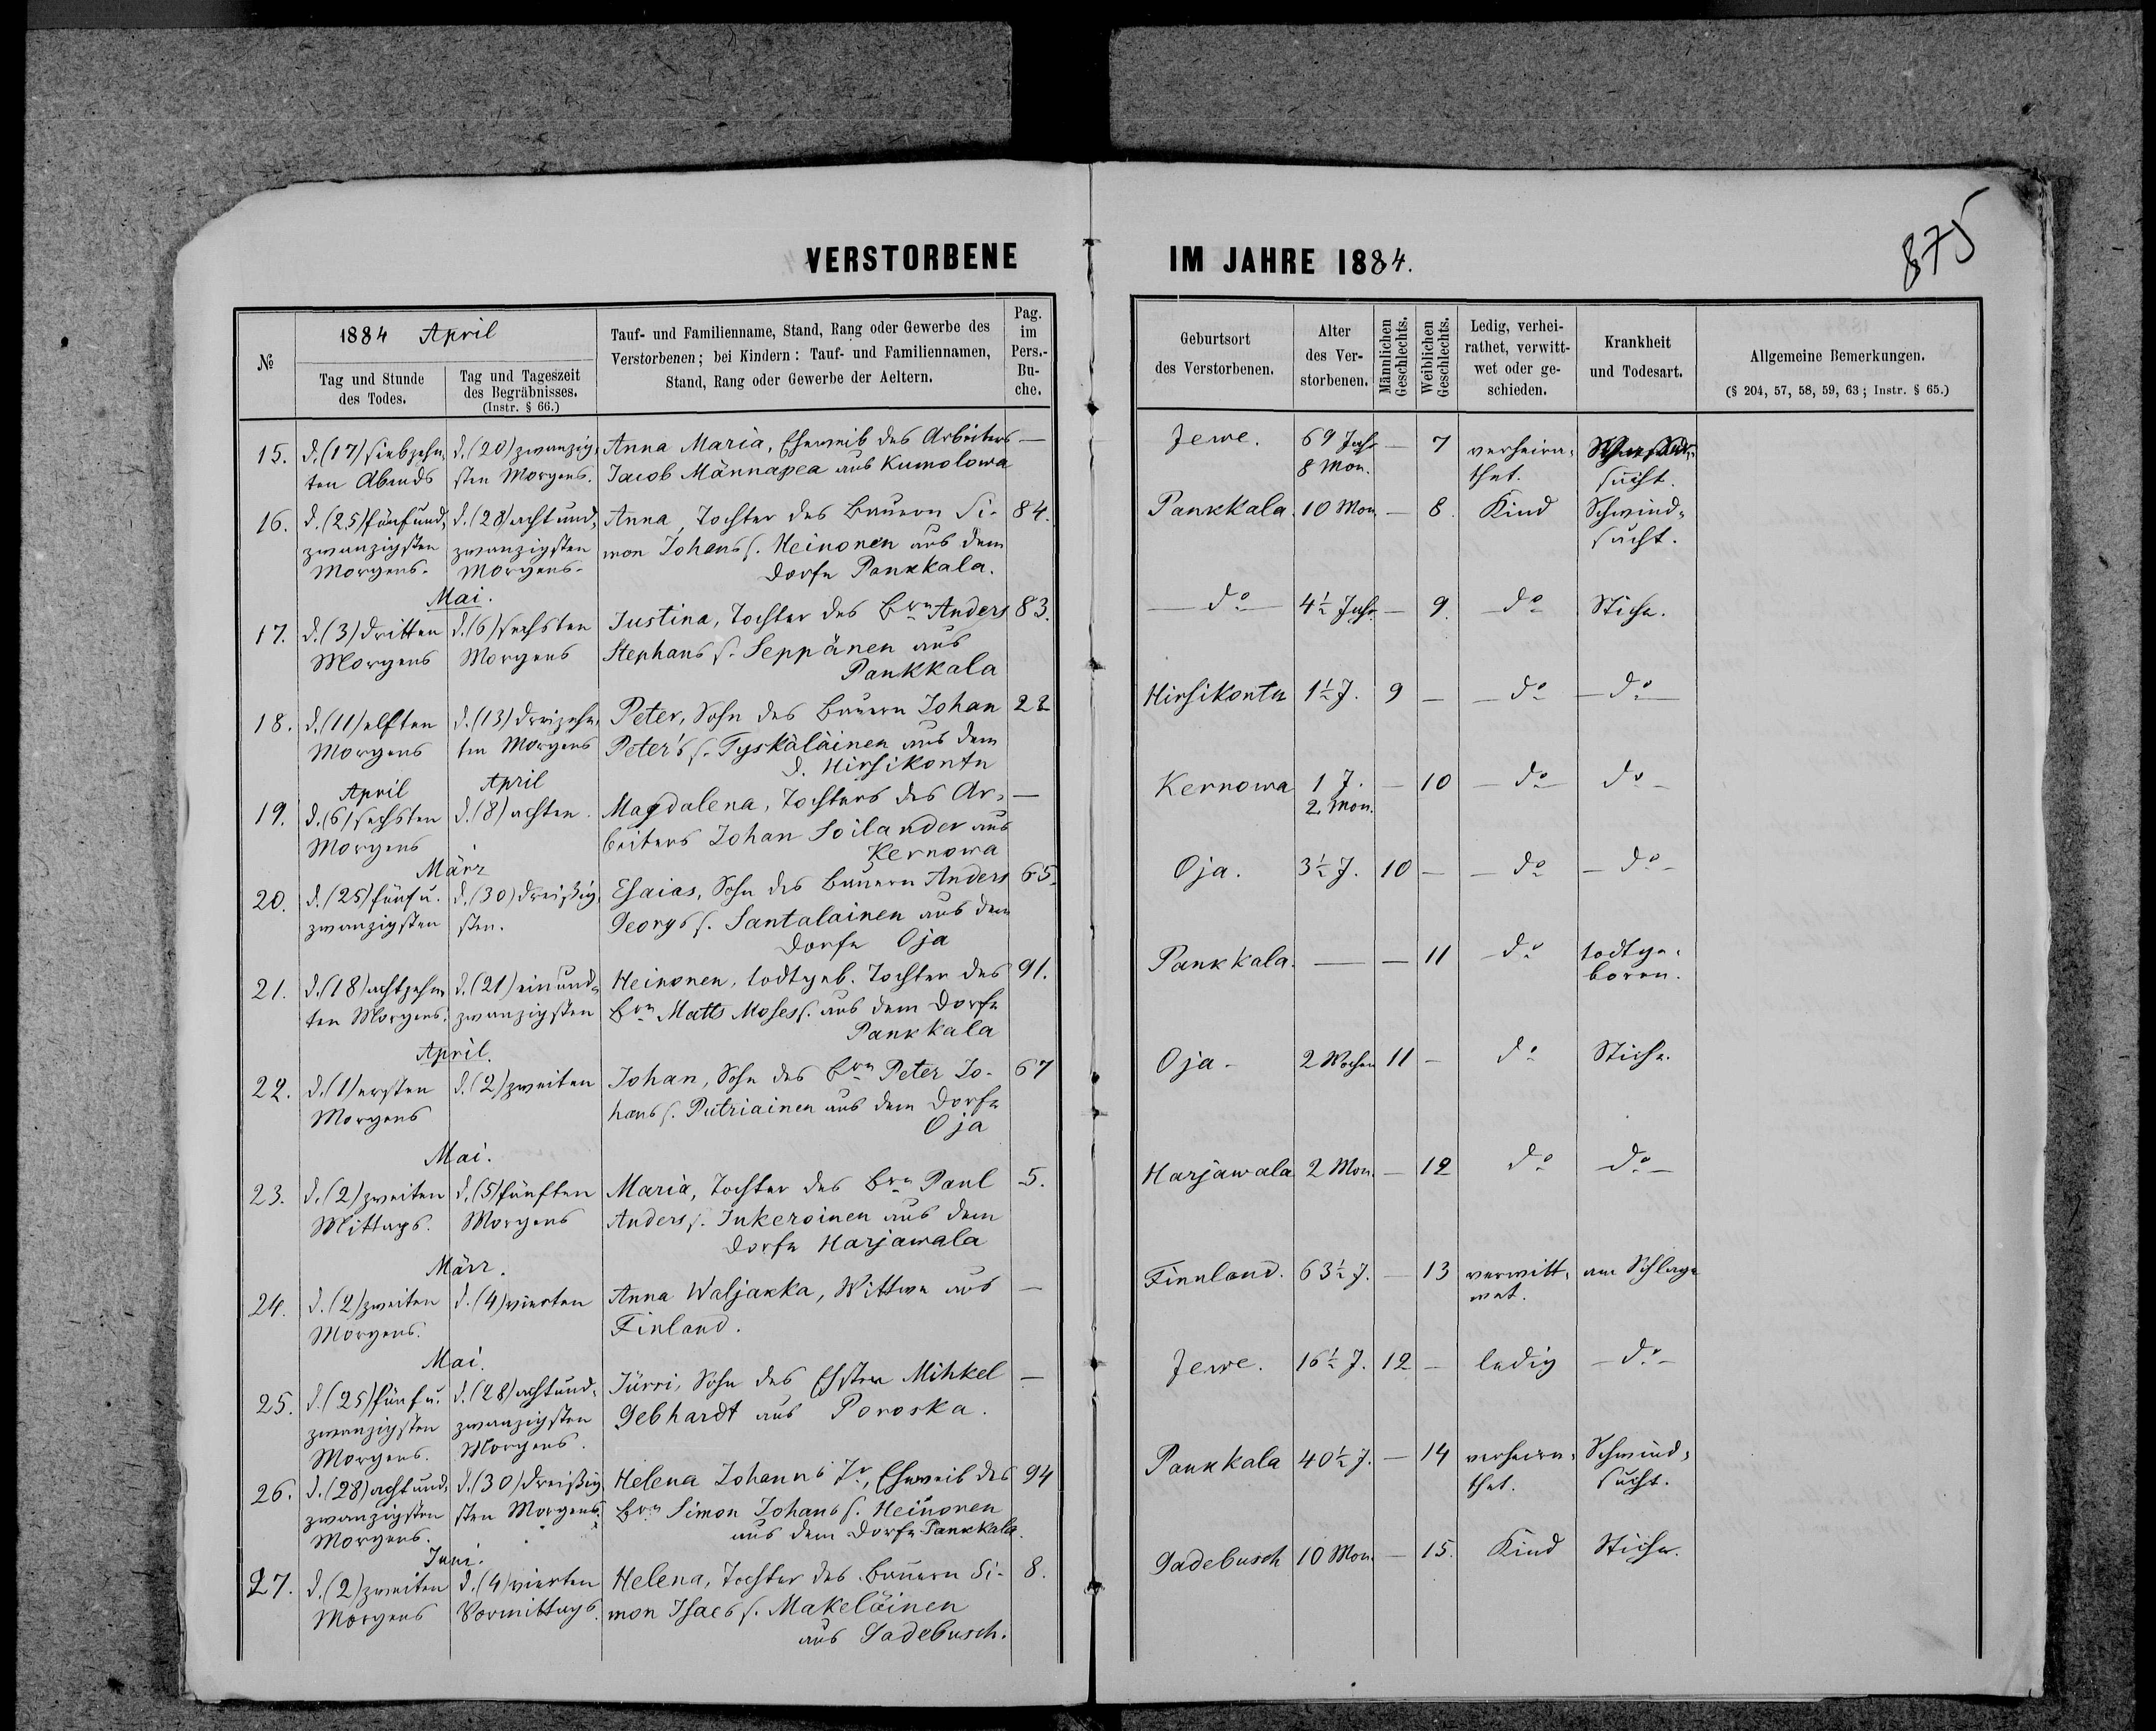 VERSTORBENE
IM JAHRE 1884.
875
№
1884 April
Tag und Stunde
des Todes.
Tag und Tageszeit
des Begräbnisses.
(Instr. § 66.)
Tauf- und Familienname, Stand, Rang oder Gewerbe des
Verstorbenen; bei Kindern: Tauf- und Familiennamen,
Stand, Rang oder Gewerbe der Aeltern.
Pag.
im
Pers.-
Bu-
che.
Geburtsort
des Verstorbenen.
Alter
des Ver-
storbenen.
Männlichen
Geschlechts.
Weiblichen
Geschlechts.
Ledig, verhei-
rathet, verwitt-
wet oder ge-
schieden.
Krankheit
und Todesart.
Allgemeine Bemerkungen.
(§ 204, 57, 58, 59, 63; Instr. § 65.)
15. d. (17) siebzehn- d. (20) zwanzig- Anna Maria, Eheweib des Arbeiters — Jewe. 69 Jahr — 7 verheira-
ten Abends sten Morgens. Jacob Männapea aus Kumolowa 8 Mon. thet. sucht.
16. d. (25) fünfund- d. (28) achtund- Anna, Tochter des Bauern Si- 84. Pankkala. 10 Mon. — 8. Kind Schwind-
zwanzigsten zwanzigsten mon Johans s. Heinonen aus dem sucht.
Morgens. Morgens. Dorfe Pankkala.
Mai.
17. d. (3) dritten d. (6) sechsten Justina, Tochter des Brn Anders 83. — do — 4½ Jahr — 9. — do Stiche.
Morgens Morgens Stephans s. Seppänen aus
Pankkala
18. d. (11) elften d. (13) dreizehn- Peter, Sohn des Bauern Johan 22 Hirsikontu 1½ J. 9 — — do — — do —
Morgens ten Morgens Peter's s. Tyskäläinen aus dem
d. Hirsikontu
April April
19. d. (6) sechsten d. (8) achten. Magdalena, Tochters des Ar- — Kernowa 1 J. — 10 — do — do —
Morgens beiters Johan Soilander aus 2 Mon.
Kernowa
März
20. d. (25) fünf u. d. (30) dreißig- Esaias, Sohn des Bauern Anders 65. Oja. 3½ J. 10 — — do — do —
zwanzigsten sten. Georgs s. Santalainen aus dem
Dorfe Oja
21. d. (18) achtzehn- d. (21) einund- Heinonen, todtgeb. Tochter des 91. Pankkala. — — 11 do todtge-
ten Morgens. zwanzigsten Brn Matts Moses s. aus dem Dorfe boren.
Pankkala
April.
22. d. (1) ersten d. (2) zweiten Johan, Sohn des Brn Peter Jo- 67 Oja — 2 Wochen 11 — do Stiche.
Morgens hans s. Putriainen aus dem Dorfe
Oja
Mai.
23. d. (2) zweiten d. (5) fünften Maria, Tochter des Brn Paul 5. Harjawala 2 Mon. — 12 do do —
Mittags. Morgens Anders s. Inkeroinen aus dem
Dorfe Harjawala
März.
24. d. (2) zweiten d. (4) vierten Anna Waljakka, Wittwe aus — Finnland. 63½ J. — 13 verwitt- am Schlage
Morgens. Finland. wet.
Mai.
25. d. (25) fünf u. d. (28) achtund- Jürri, Sohn des Ehsten Mihkel — Jewe. 16½ J. 12 — ledig — do —
zwanzigsten zwanzigsten Gebhardt aus Poroska.
Morgens. Morgens.
26. d. (28) achtund- d. (30) dreißig- Helena Johanns Tr, Eheweib des 94 Pankkala 40½ J. — 14 verheira- Schwind-
zwanzigsten sten Morgens. Brn Simon Johans s. Heinonen thet. sucht.
Morgens. aus dem Dorfe Pankkala.
Juni.
27. d. (2) zweiten d. (4) vierten Helena, Tochter des Bauern Si- 8. Gadebusch 10 Mon. — 15. Kind Stiche.
Morgens Vormittags. mon Isacs s. Makeläinen
aus Gadebusch.